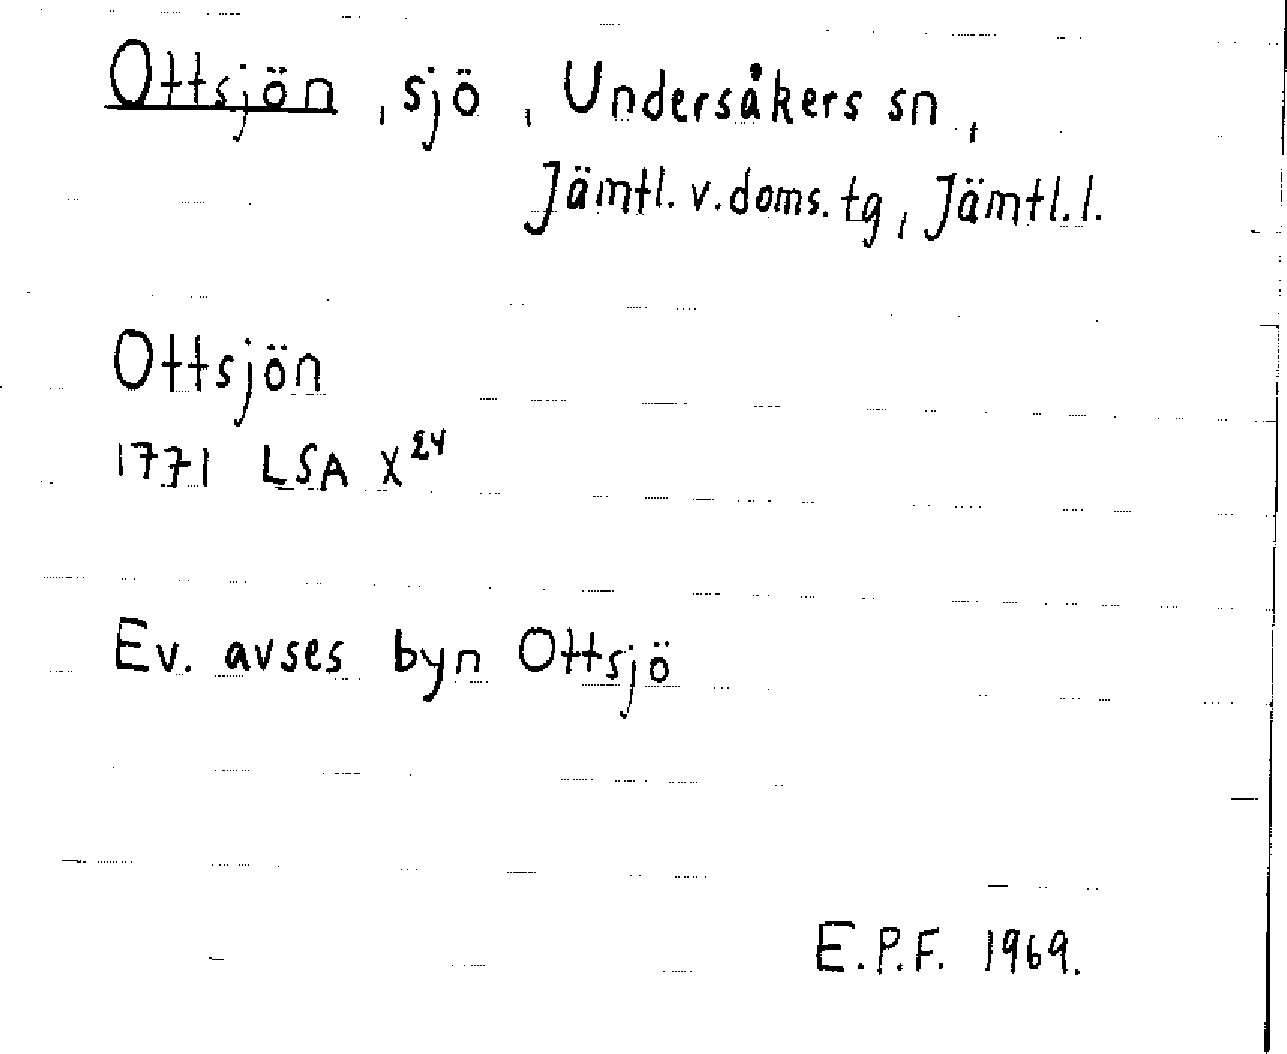 Ottsjön, sjö, Undersåkers sn,
Jämtl. v. doms. tg, Jämtl. l.
Ottsjön
1771 LSA X²⁴
Ev. avses byn Ottsjö
E.P.F. 1969.